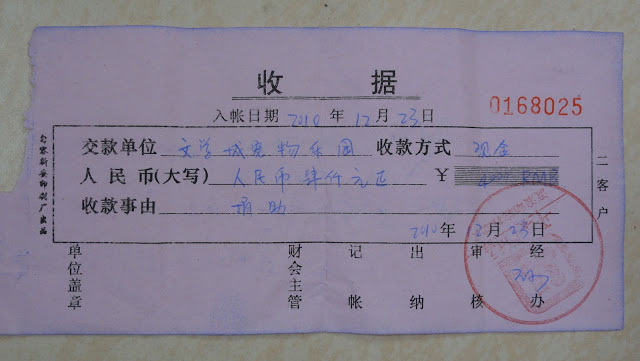 收 据
入帐日期 2010 年 12 月 23 日
0168025
交款单位 文学城宠物乐园 收款方式 现金
人民币(大写) 人民币肆仟元正 ¥ 4000 RMB
收款事由 捐助
2010 年 12 月 23 日
二客户
单位盖章 财会主管 记帐 出纳 审核 经办